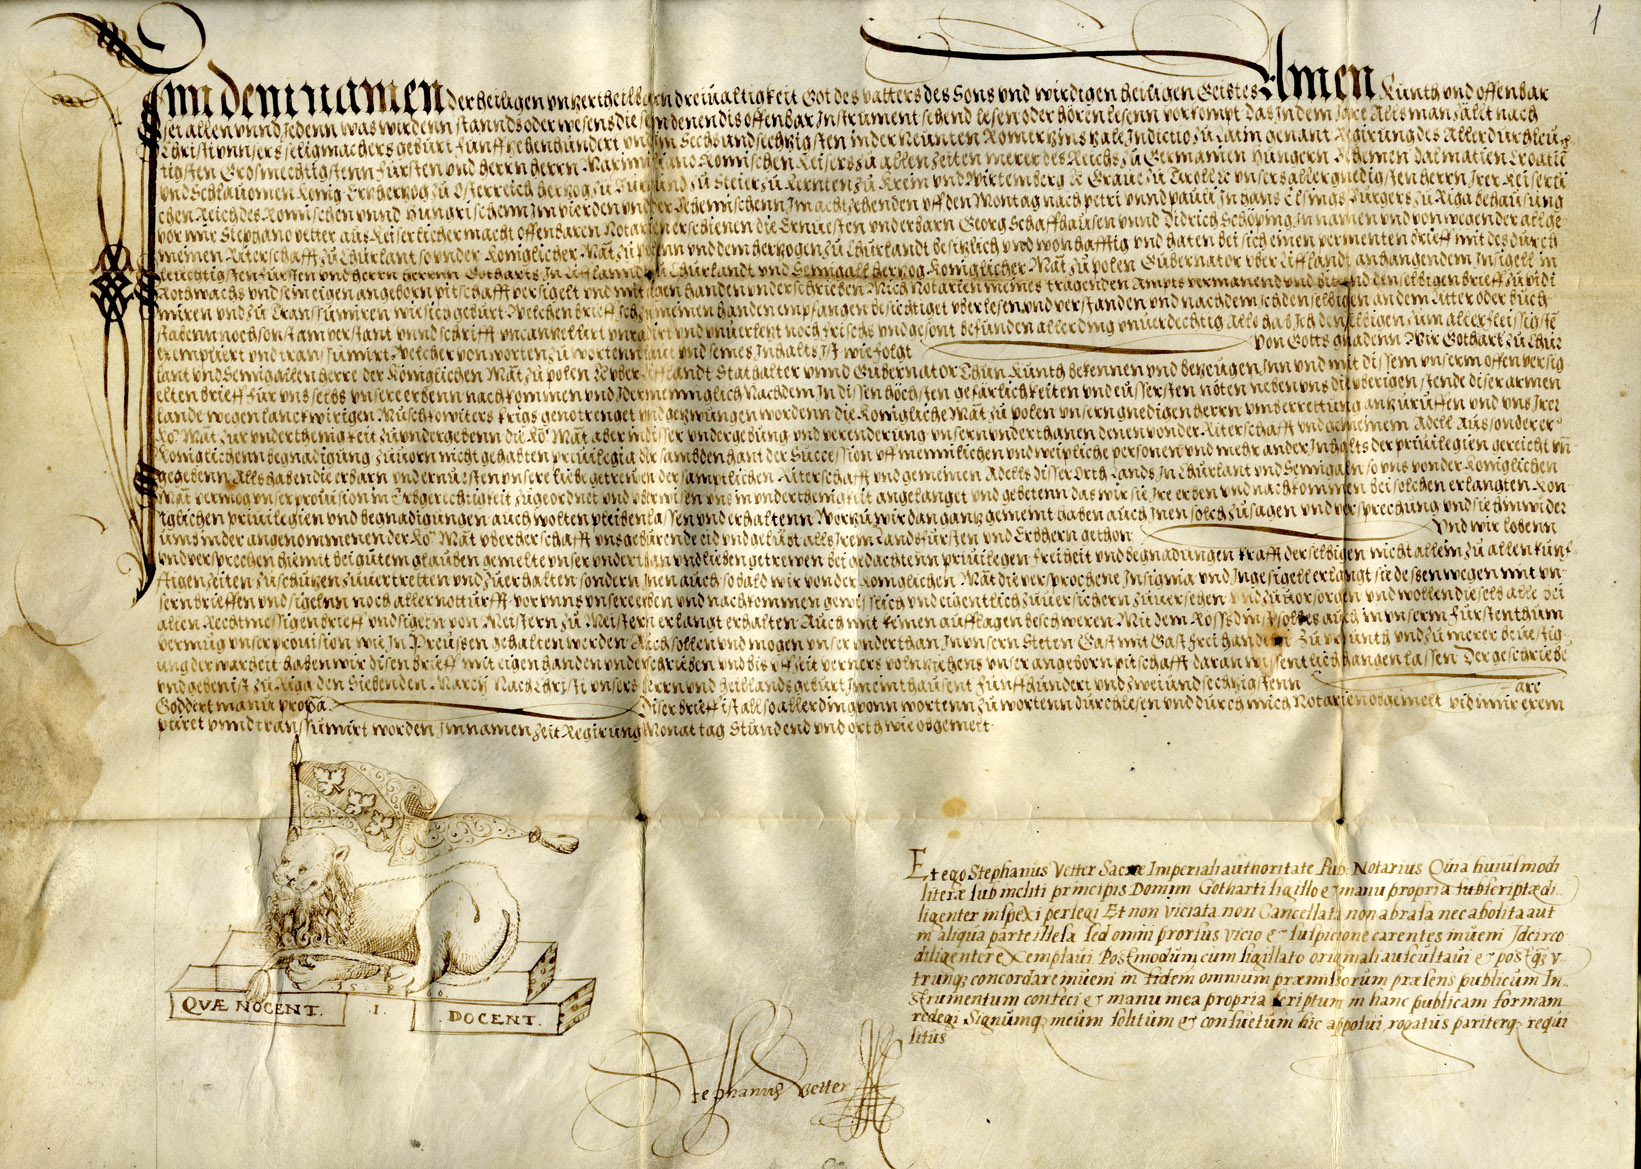 1
Inn dem namen der heiligen unzertheilbarn dreiualtigkeit Got des vatters des Sons und wirdigen heiligen Geistes Amen Kunth und offenbar
sei allen unnd Jedenn was wirdenn stannds oder wesens die sein denen dis offenbar Instrument sehend lesen oder hören lesenn vorkompt Das In dem Jare Als man zalt nach
Christi unnsers seligmachers geburt funffzehenhundert und Im Sechsundsechzigsten in der Neunten Romer Zins zale Indictio zu Latin genant Regirung des Allerdurchleuch
tigsten Grosmechtigstenn Fursten und herrn herrn Maximilian Romischen Keisers zu allen zeiten merer des Reichs zu Germanien Hungern Behemen Dalmatien Croatien
und Sclauonien Konig Ertzherzog zu Osterreich herzog zu Burgund zu Steier zu Kernten zu Krein und Wirtemberg &c Graue zu Tiroll &c unsers allergnedigsten herrn Irer Keiserli
chen Reich des Romischen unnd Hungrischenn Im vierden und der Behemischenn Im achtzehenden uff den Montag nach petri unnd pauli In hans Elsings Burgers zu Riga behausung
vor mir Stephano vetter aus Keiserlicher macht offenbaren Notarien erschienen die Ernuesten und erbarn Georg Schaffhausen unnd Didrich Schöping In namen und von wegen der allge
meinen Ritterschafft zu Churlant so under Koniglicher Mat zu polenn unnd dem herzogen zu Churlandt besitzlich und wonhafftig und haten bei sich einen permenten brieff mit des durch
leuchtigsten fursten und herrn herrnn Gotharts In Lifflannd zu Churlandt und Semigall herzog Koniglicher Mat zu polen Gubernator uber Liffland anhangendem Insigell in
Rothwachs und sein eigen angeborn pitschafft versigelt und mit eigen handen underschrieben Mich Notarien meines tragenden Ampts vermanend und bittend denselbigen brieff zu vidi
miren und zu Transsumiren wie sich geburt Welchen brieff Ich zu meinen handen empfangen besichtiget uberlesen und verstanden und nachdem Ich den selbigen an dem Litter oder buch
stabenn noch sonst am verstant unnd schrifft uncancellirt unradirt und unuerlezt noch frisch und gesont befunden allerding unuerdechtig Alls hab Ich den selbigen zum allerfleissigste
exemplirt und transsumirt Welcher von worten zu wortenn laut und seines Inhalts Ist wie folgt Von Gotts gnadenn Wir Gothart zu Chur
lant und Semigallen herre der Königlichen Mat zu polen &c uber Lifflandt Stathalter unnd Gubernator Thun Kunth bekennen und bezeugen Inn und mit dissem unserm offen versig
elten brieff fur uns selbs unsere erben nachkommen und Idermenniglich Nachdem In dissen höchsten gefarlichkeiten und eussersten nöten neben uns die uberigen stende diser armen
lande wegen lanckwirigen Muschkowiters krigs genotrenget und gezwungen wordenn die Konigliche Mat zu polen unsern gnedigen herrn umb errettung anzuruffen und uns Irer
Ko Mat zur underthenigkeit zu undergebenn die Ko Mat aber in disser undergebung und verenderung unsern underthanen denen von der Ritterschafft und gemeinem Adell aus sonderer
Koniglichenn begnadigung zuuorn nicht gehabten priuilegia der samdenhant der Succession uff mennlichen und weipliche personen und mehr ander Inhalts der priuilegien gereicht un
gegebenn Alls haben die erbarn und ernuesten unsere liebe getrewen der samptlichen Ritterschafft und gemeinen Adells disser Orth Lands In Churlant und Semigaln so uns von der Koniglichen
Mat vermög unser prouision in Erbgerechtigkeit zugeordnet und uberwisen uns in underthenigkeit angelanget und gebetenn das wir sie Ire erben und nachkommen bei solchen erlangten Kon
iglichen priuilegien und begnadigungen auch wolten pleiben lassen und erhaltenn Worzu wir dan gantz gemeint haben auch Inen solch zusagen und versprechung und sie hinwider
umb in der angenommenen der Ko Mat uberherschafft uns geburende eid und gelubt alls Irem Landsfursten und Erbhern gethon Und wir lobenn
und versprechen hiemit bei gutem glauben gemelte unser underthan und lieben getrewen bei gedachtenn priuilegen freiheit und begnadungen krafft derselbigen nicht allein zu allen kunf
ftigen zeiten zu schutzen zuuertretten und zuerhalten sondern Inen auch so bald wir von der Koniglichen Mat die versprochene Insignia und Ingesigell erlangt sie dessen wegen mit un
sern brieffen und sigelnn noch aller notturfft vor unns unsere erben und nachkommen gewisslich und eigentlich zuuersichern zuuersehen und zuuorsorgen und wollen dieselb alle bei
alten Rechtmessigen brieff und sigeln von Meistern zu Meistern erlangt erhalten Auch mit keinen aufflagen beschweren Mit dem Rossdinst soll es auch in unserm Furstenthum
vermug unser prouision wie In Preussen gehalten werden Auch sollen und mogen unser underthan In unsern Steten Gast mit Gast frei handeln Zu urkunth und zu merer beuestig
ung der warheit haben wir disen brieff mit eigen handen underschrieben und bis uff zeit verners volnziehens unser angeborn pitschafft daran wissentlich hangen lassen Der geschriebe
und geben ist zu Riga den Siebenden Marcij Nach Christi unsers herrn und heillands geburt Im eintthausent Funffhundert und zwei und sechzigstenn
Goddert manu propria Diser brieff ist allso allerding vonn worten zu worten durchlesen und durch mich Notarien obgemelt vidimirt exem
are
puret unnd transsumirt worden Im namen zeit Regirung Monat tag Stund end und orth wie obgemelt
15 66
QVÆ NOCENT. .I. DOCENT.
Et ego Stephanus Vetter Sacræ Imperiali authoritate Pub: Notarius Quia huiusmodi
literæ sub incliti principis Domini Gotharti sigillo & manu propria subscriptæ di..
ligenter inspexi perlegi Et non viciata non Cancellata non abrasa nec abolita aut
in aliqua parte illesa sed omni prorsus vicio & suspicione carentes inueni Idcirco
diligenter exemplaui Postmodum cum sigillato originali auscultaui & postq3 v-
trunq3 concordare inueni in fidem omnium præmissorum præsens publicum In..
strumentum confeci & manu mea propria scriptum in hanc publicam formam
redegi Signumq3 meum solitum & consuetum hic apposui rogatus pariterq3 requi
situs
Stephanus Vetter